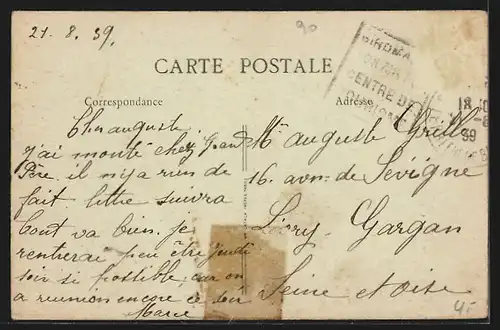 21. 8. 39.
90
CARTE POSTALE
Correspondance
Adresse
Cher auguste
j'ai monté chez gran
Père il n'y a rien de
fait lettre suivra
tout va bien je
rentrerai peu être jeudi
soir si possible, car on
a reunion encore ce soir
Marie
Mr auguste Grillo
16. avn. de Sévigné
Livry-Gargan
Seine et oise
BIRDMA
CENTRE D
18
39